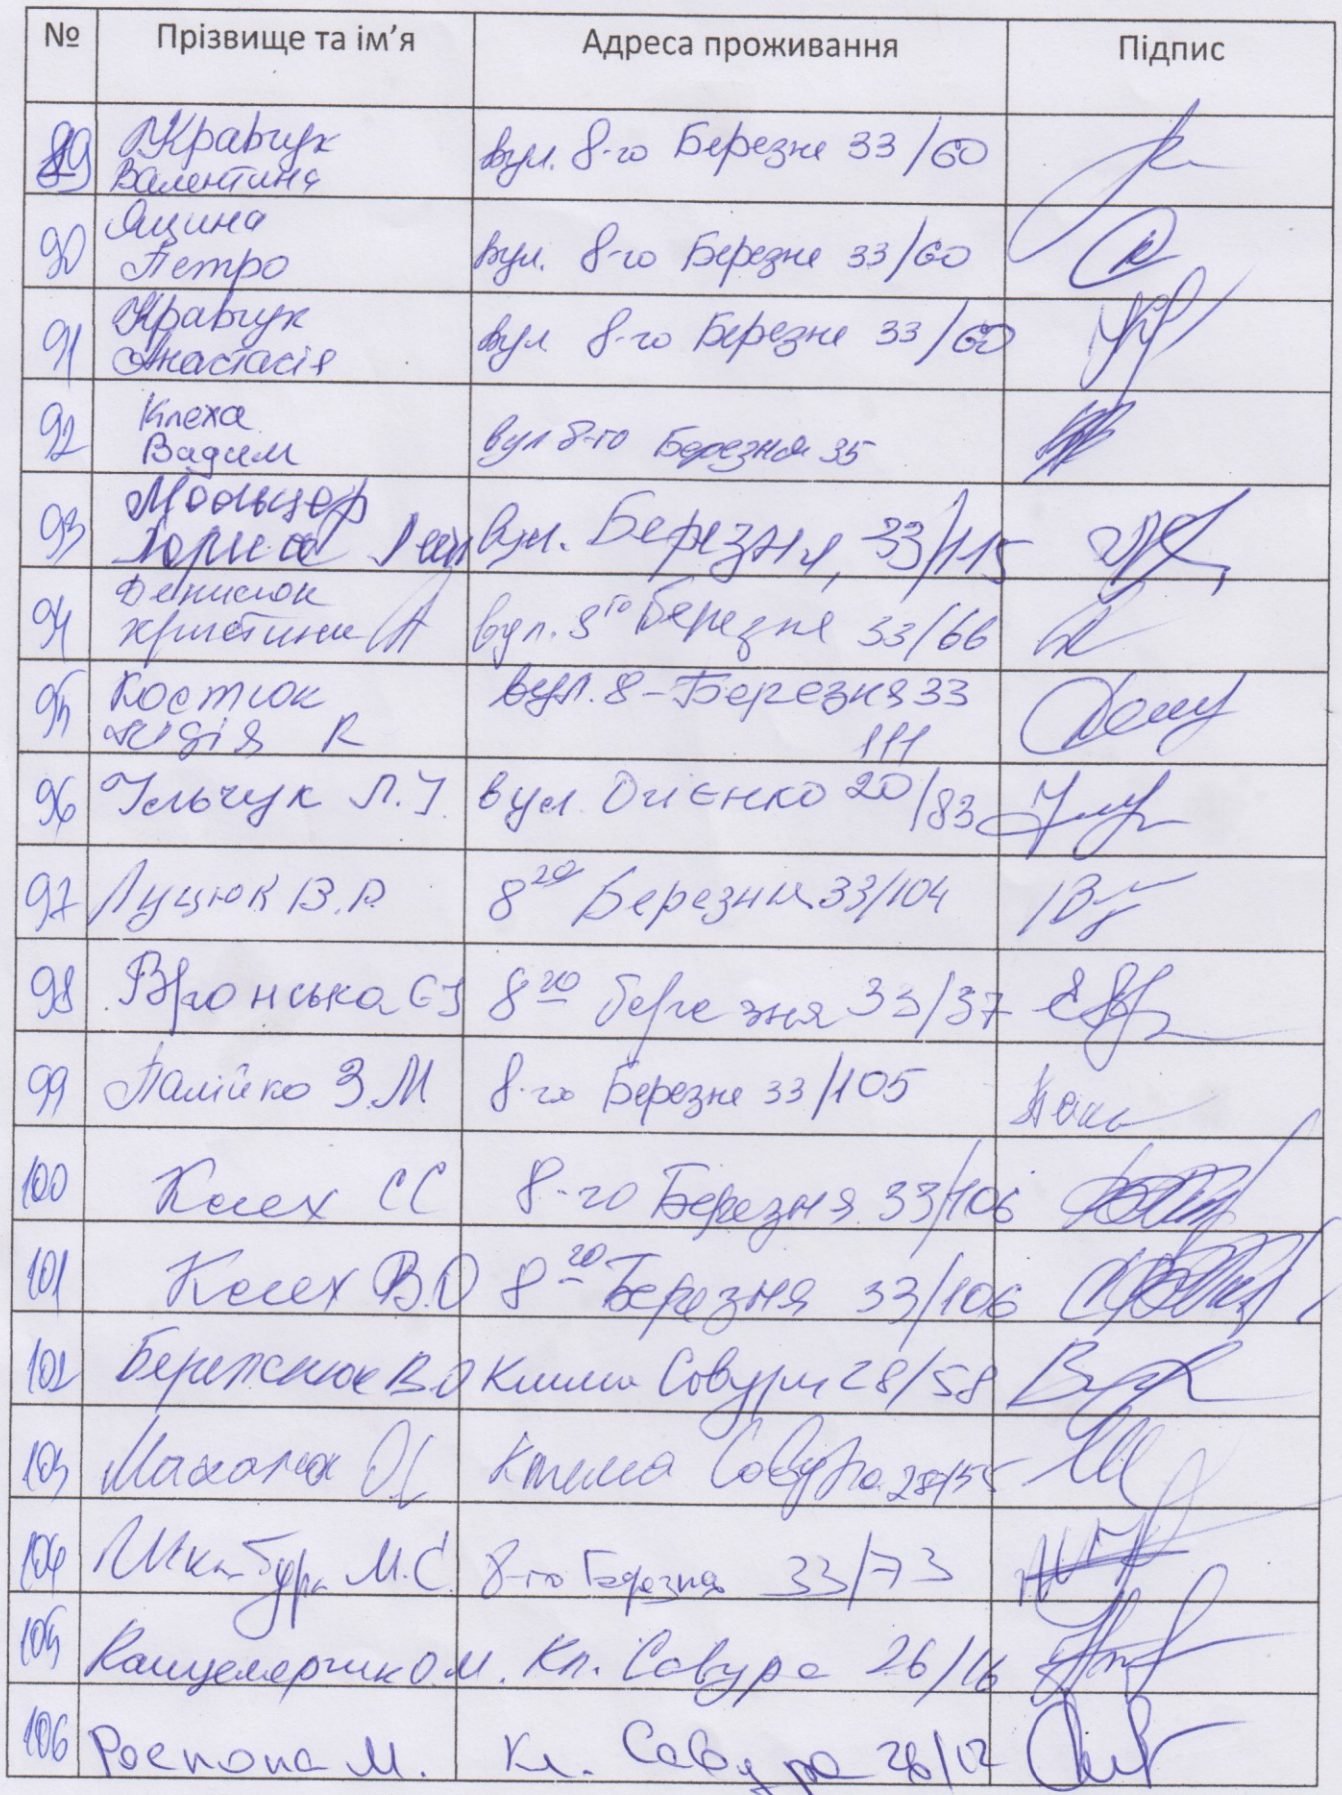 № Прізвище та ім'я Адреса проживання Підпис
89 Кравчук Валентина вул. 8-го Березне 33/60
90 Яцина Петро вул. 8-го Березне 33/60
91 Кравчук Анастасія вул 8-го Березне 33/60
92 Клеха Вадим вул 8-го Березня 35
93 вул. Березня, 33/115
94 Денисюк Христина А вул. 8го Березне 33/66
95 Костюк Лідія К вул. 8-Березня 33
111
96 Ільчук Л.І. вул. Огієнко 20/83
97 Луцюк В.Р. 8го Березня 33/104
98 Вронська Є І 8го березня 33/37
99 Палійко З.М 8-го Березне 33/105
100 Клех С С 8-го Березня 33/106
101 Клех В.О 8го Березня 33/106
102 Бережнюк В.О Клима Савури 28/58
103 Клима Савура 28/55
104 М.С. 8-го Березня 33/73
105 Канцелярчик О.М. Кл. Савура 26/16
106 Роскопа М. Кл. Савура 26/12